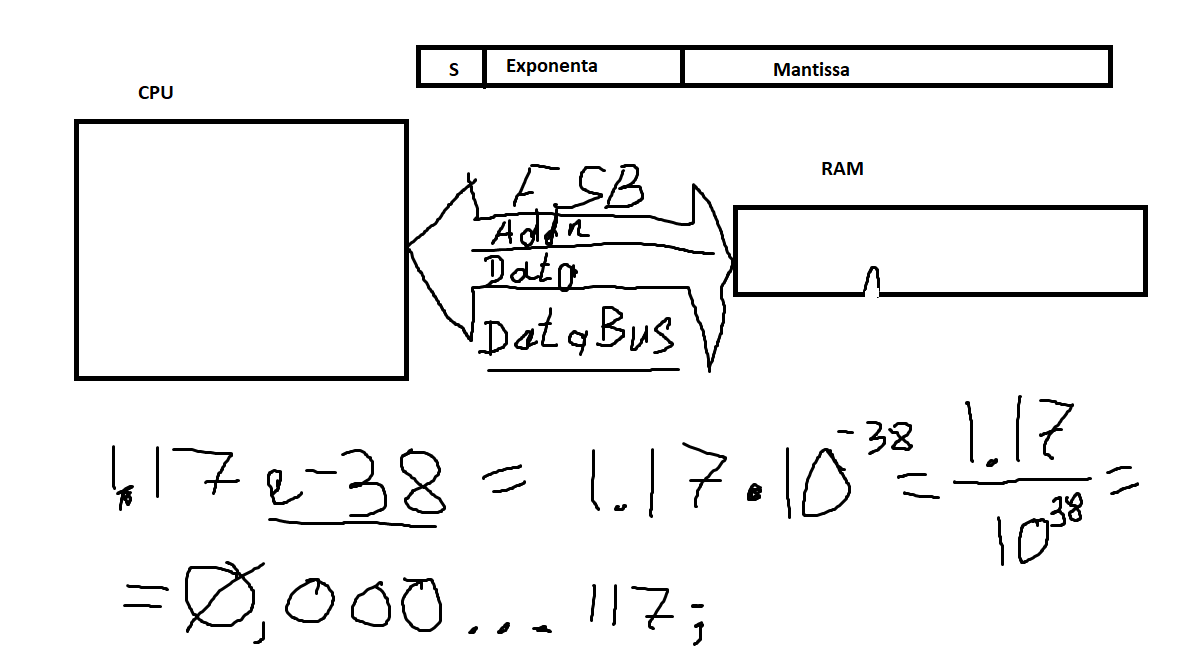 S Exponenta Mantissa
CPU
RAM
FSB
Addr
Data
Data Bus
1.17 e-38 = 1.17 · 10^-38 = 1.17 / 10^38 =
= 0,000... 117;